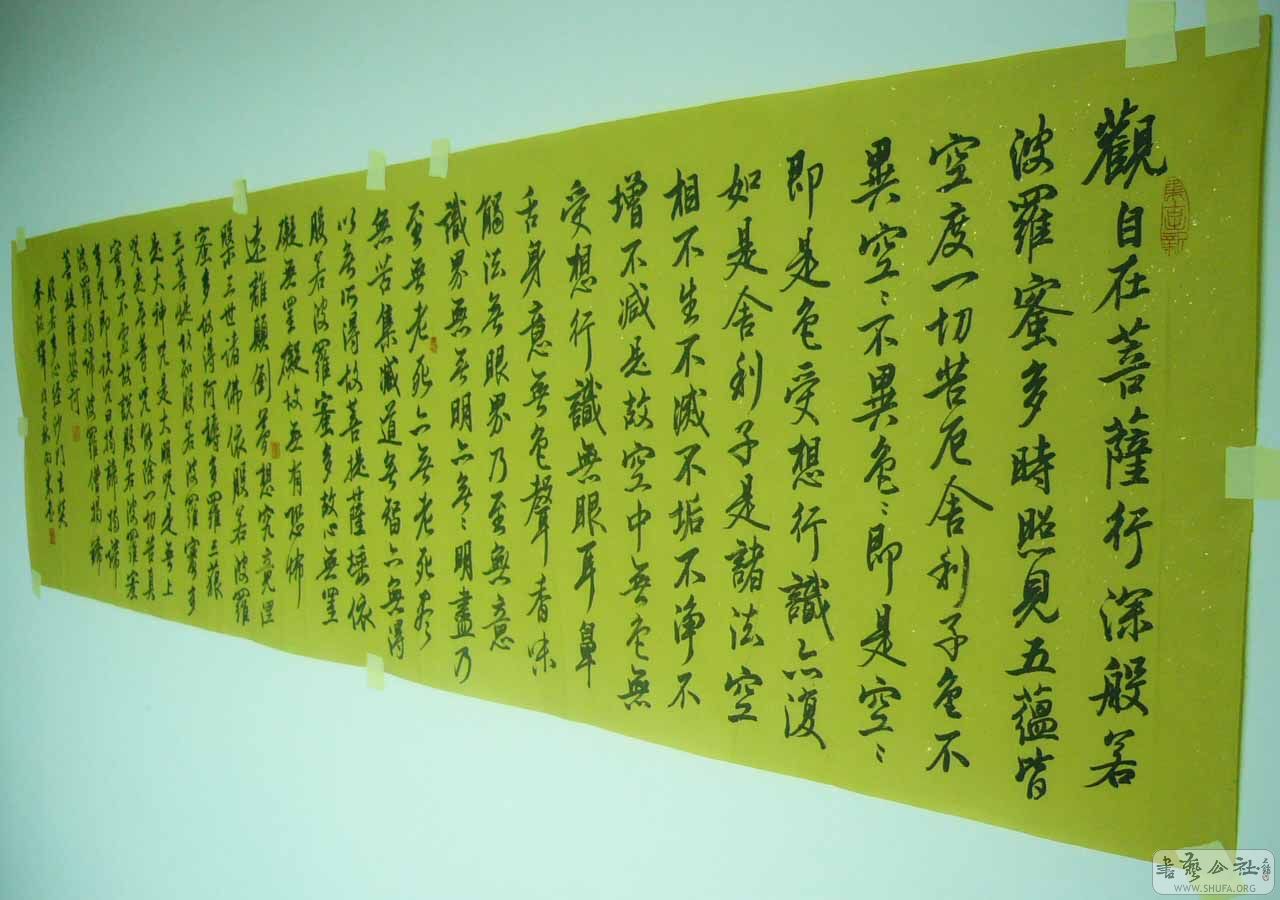 觀自在菩薩行深般若
波羅蜜多時照見五蘊皆
空度一切苦厄舍利子色不
異空〻不異色〻即是空〻
即是色受想行識亦復
如是舍利子是諸法空
相不生不滅不垢不淨不
增不減是故空中無色無
受想行識無眼耳鼻
舌身意無色聲香味
觸法無眼界乃至無意
識界無無明亦無〻明盡乃
至無老死亦無老死盡
無苦集滅道無智亦無得
以無所得故菩提薩埵依
般若波羅蜜多故心無罣
礙無罣礙故無有恐怖
遠離顛倒夢想究竟涅
槃三世諸佛依般若波羅
蜜多故得阿耨多羅三藐
三菩提故知般若波羅蜜多
是大神咒是大明咒是無上
咒是無等咒能除一切苦真
實不虛故說般若波羅蜜
多咒即說咒曰揭諦揭諦
波羅揭諦波羅僧揭諦
菩提薩婆訶
般若多心經沙門玄奘
奉詔譯
書藝公社
WWW.SHUFA.ORG